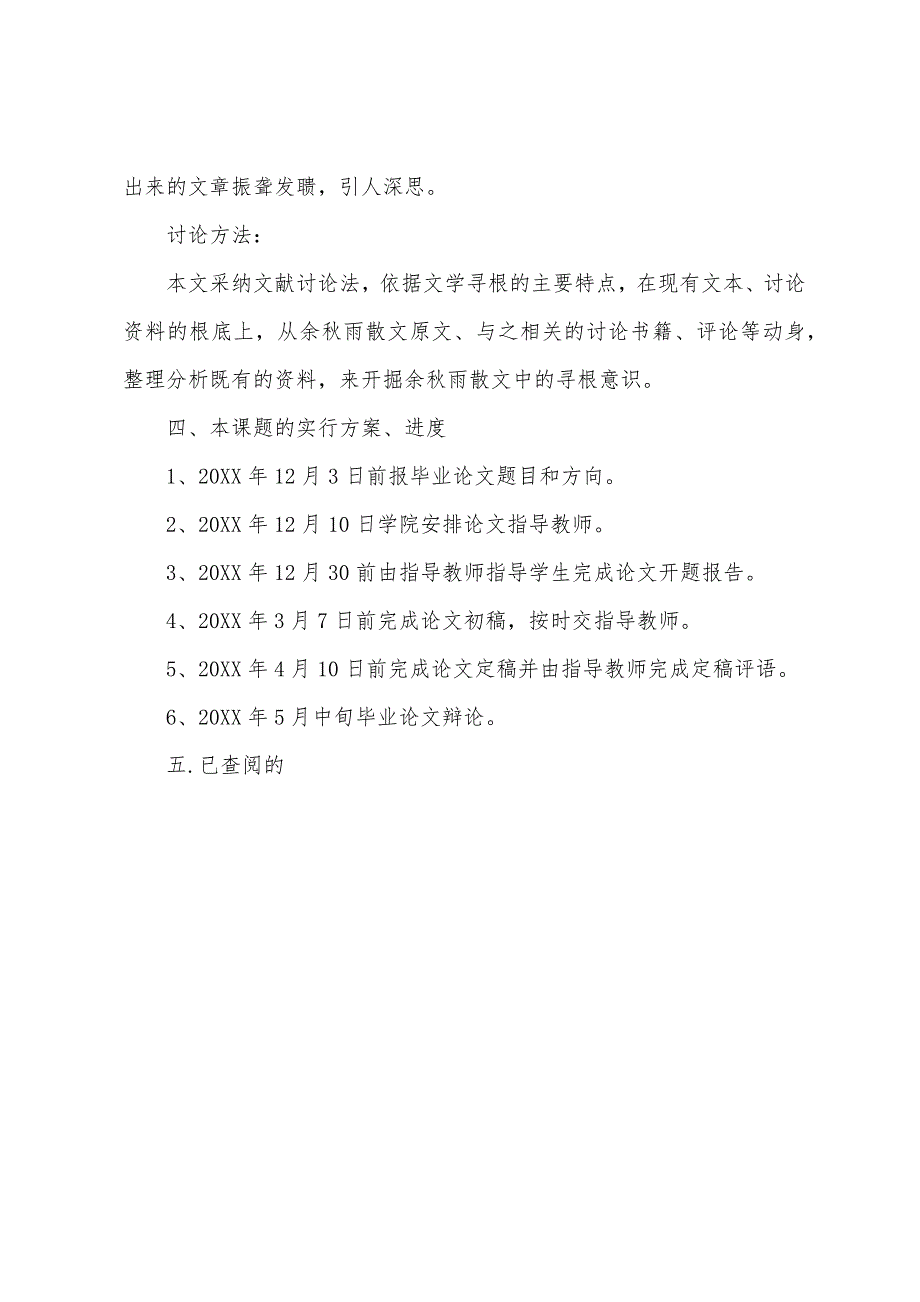 出来的文章振聋发聩，引人深思。
讨论方法：
本文采纳文献讨论法，依据文学寻根的主要特点，在现有文本、讨论
资料的根底上，从余秋雨散文原文、与之相关的讨论书籍、评论等动身，
整理分析既有的资料，来开掘余秋雨散文中的寻根意识。
四、本课题的实行方案、进度
1、20XX 年 12 月 3 日前报毕业论文题目和方向。
2、20XX 年 12 月 10 日学院安排论文指导教师。
3、20XX 年 12 月 30 前由指导教师指导学生完成论文开题报告。
4、20XX 年 3 月 7 日前完成论文初稿，按时交指导教师。
5、20XX 年 4 月 10 日前完成论文定稿并由指导教师完成定稿评语。
6、20XX 年 5 月中旬毕业论文辩论。
五.已查阅的